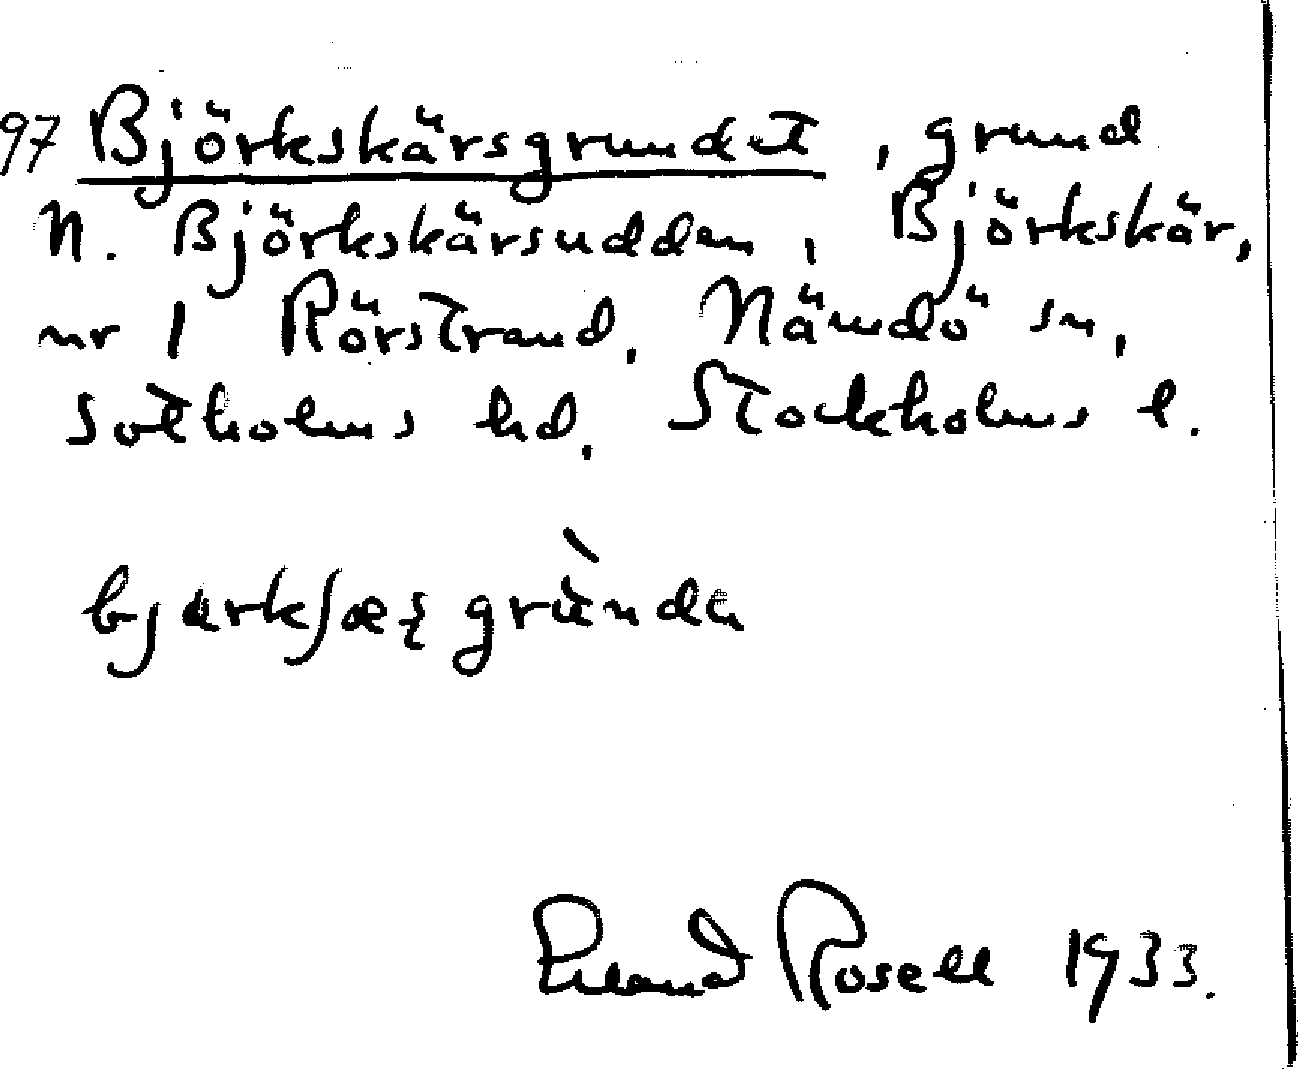 97 Björkskärsgrundet, grund
N. Björkskärsudden, Björkskär,
nr 1 Rörstrand, Nämdö sn,
Sotholms hd, Stockholms l.
Erland Rosell 1933.